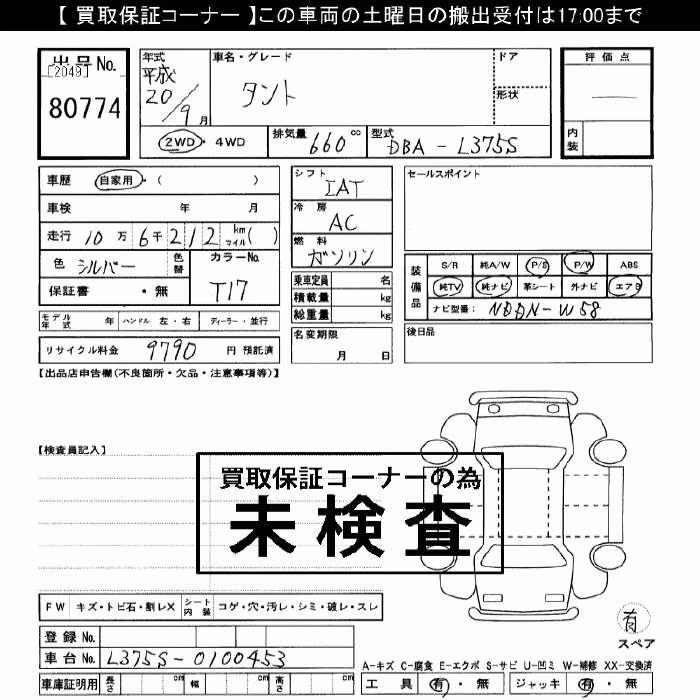 【 買取保証コーナー 】この車両の土曜日の搬出受付は17:00まで
出品No.
[2049]
80774
年式
平成
20/9月
車名・グレード
タント
ドア
形状
評価点
内装
2WD・4WD
排気量 660 cc
型式 DBA - L375S
車歴 自家用・( )
車検 年 月
走行 10万 6千 212 km マイル( )
色 シルバー 色替
カラーNo.
T17
保証書 ・無
モデル年式 年 ハンドル 左・右 ディーラー・並行
リサイクル料金 9790 円 預託済
シフト
IAT
冷房
AC
燃料
ガソリン
乗車定員 名
積載量 kg
総重量 kg
名変期限
月 日
セールスポイント
装備品
S/R 純A/W P/S P/W ABS
純TV 純ナビ 革シート 外ナビ エアB
ナビ型番: NDDN-W58
後日品
【出品店申告欄(不良箇所・欠品・注意事項等)】
【検査員記入】
買取保証コーナーの為
未検査
FW キズ・トビ石・割レX シート内装 コゲ・穴・汚レ・シミ・破レ・スレ
登録No.
車台No. L375S-0100453
車庫証明用 長さ cm 幅 cm 高さ cm
有
スペア
A-キズ C-腐食 E-エクボ S-サビ U-凹ミ W-補修 XX-交換済
工具 有・無 ジャッキ 有・無